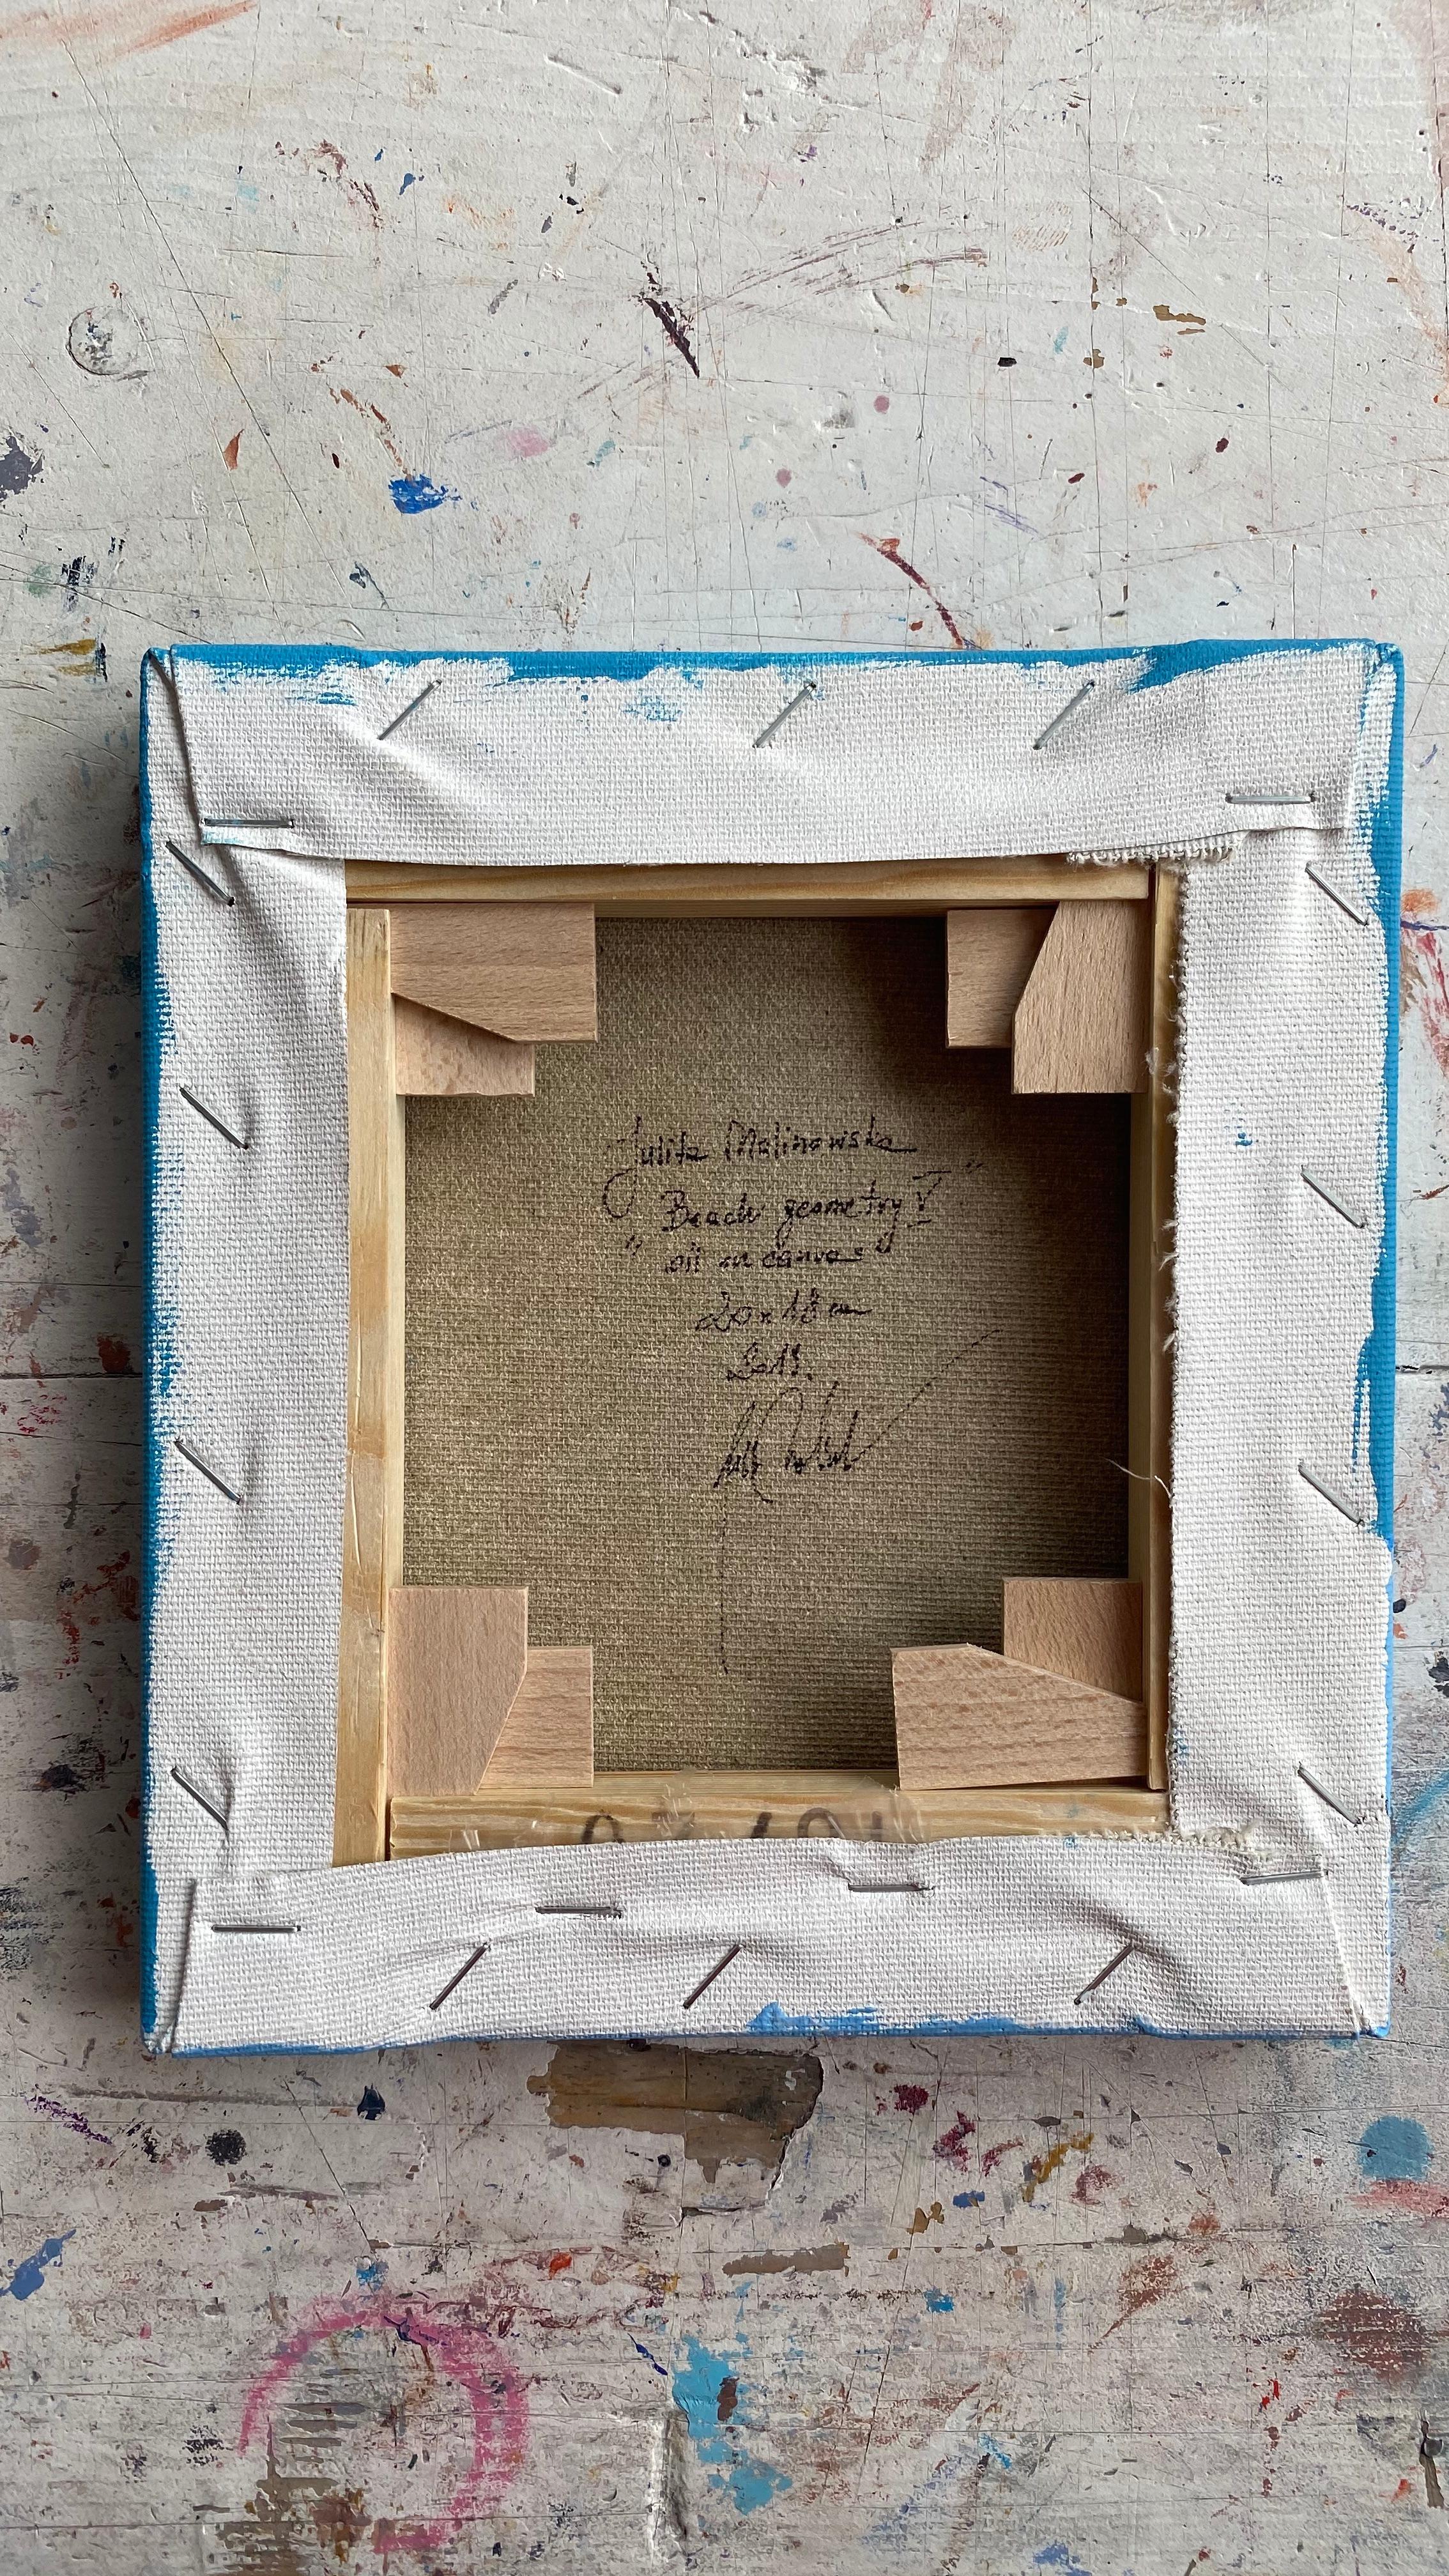 Julita Malinowska
"Beach geometry V"
oil on canvas
20x18 cm